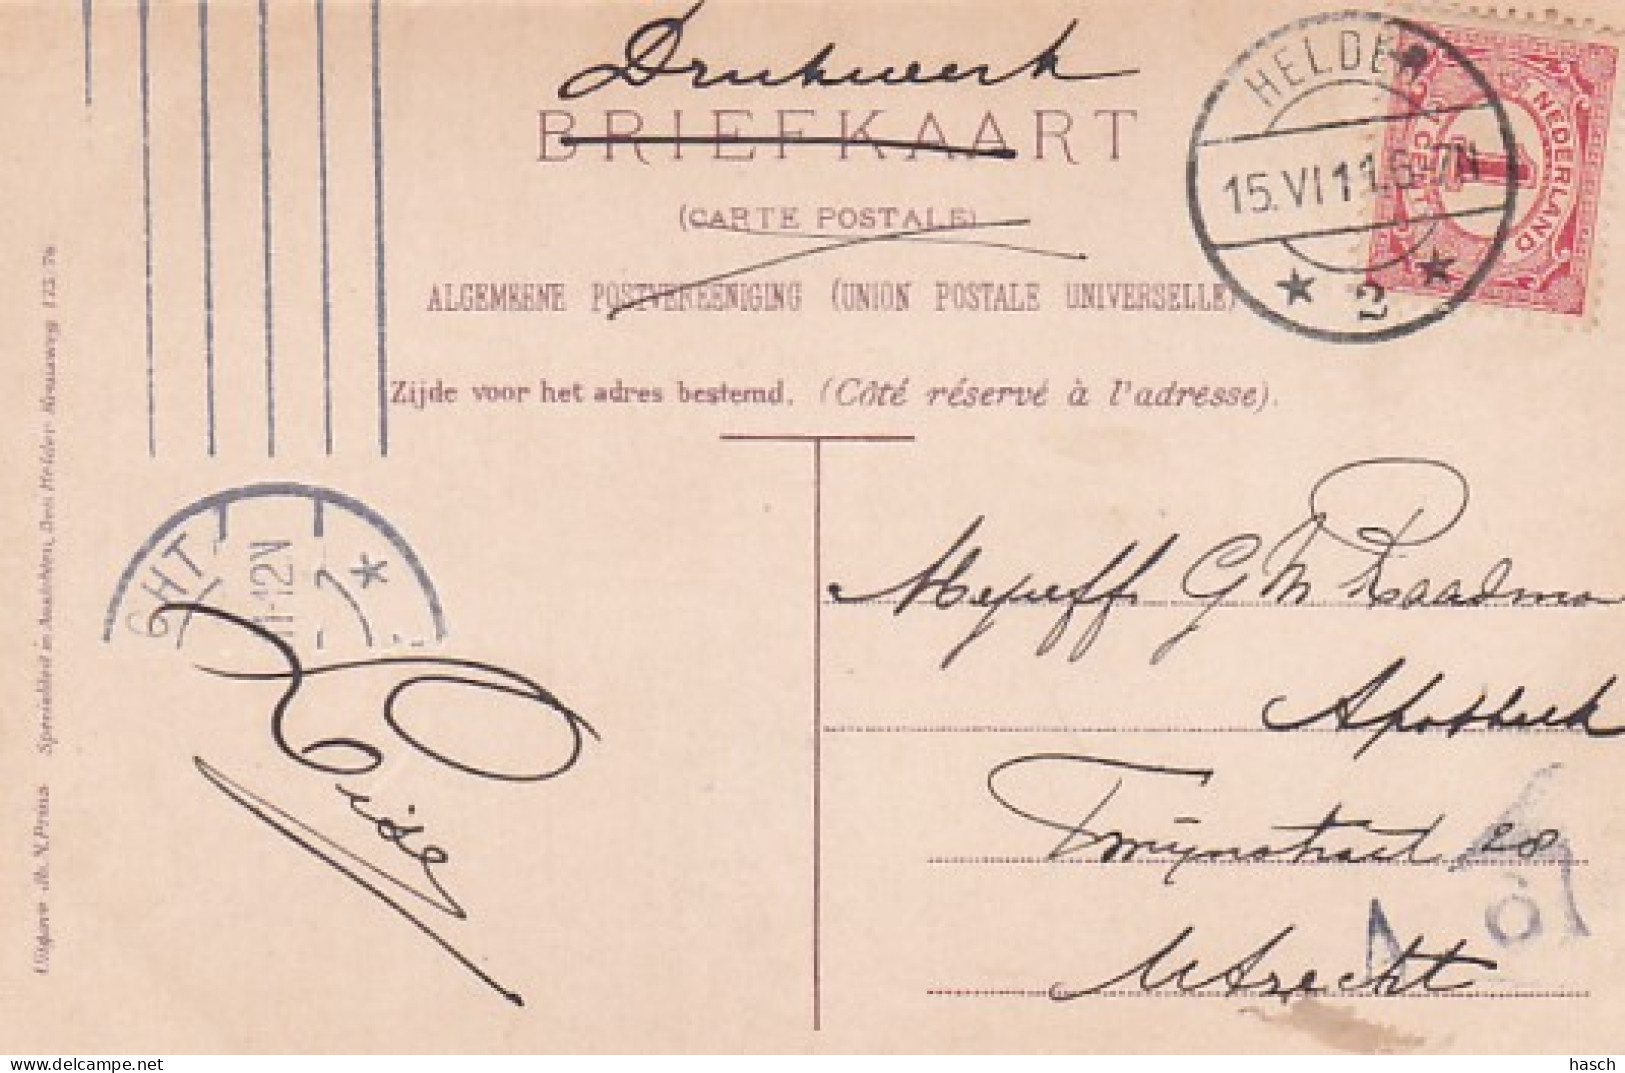 Drukwerk
BRIEFKAART
(CARTE POSTALE)
ALGEMEENE POSTVEREENIGING (UNION POSTALE UNIVERSELLE)
Zijde voor het adres bestemd. (Côté réservé à l'adresse).
HELDER
15.VI 11.6-7N
2
NEDERLAND
1 CENT
CHT
11-12N
Mejuff. G M Raadma
Apotheek
Twijnstraat 28
Utrecht
Uitgave Jb. N. Prins Specialiteit in Ansichten, Den Helder
hasch
delcampe.net